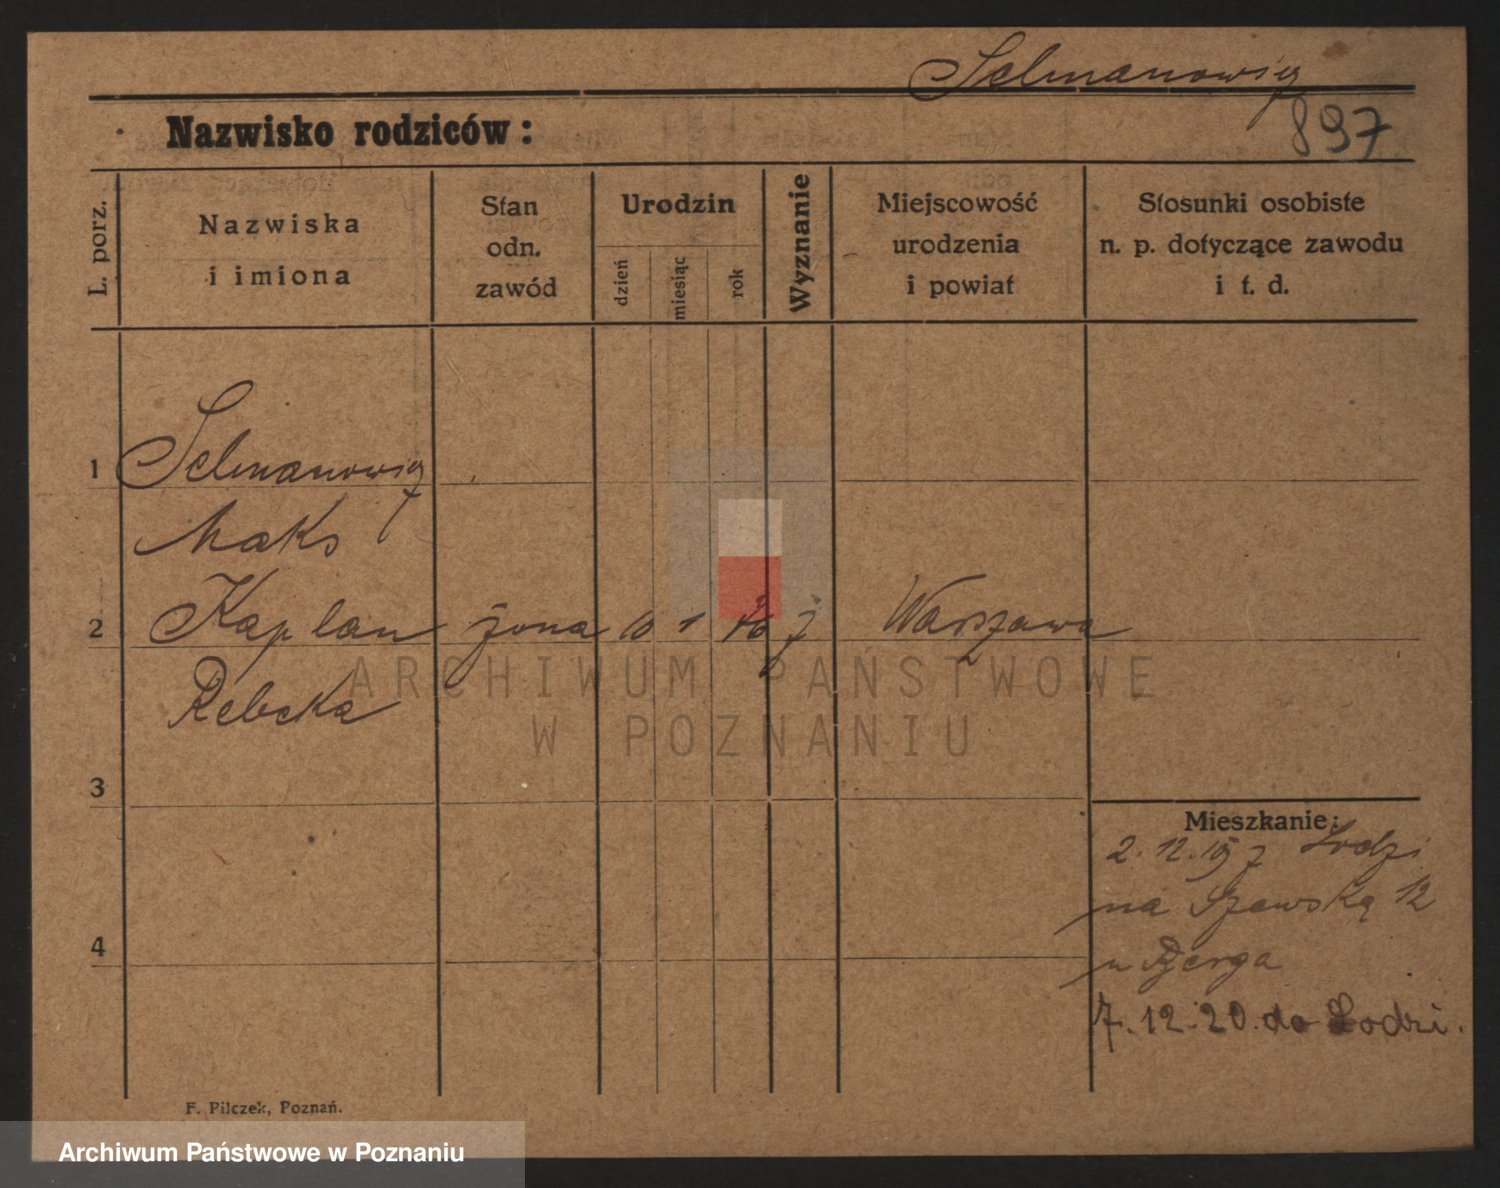 Selmanowicz
Nazwisko rodziców:
897
L. porz.
Nazwiska
i imiona
Stan
odn.
zawód
Urodzin
dzień
miesiąc
rok
Wyznanie
Miejscowość
urodzenia
i powiat
Stosunki osobiste
n. p. dotyczące zawodu
i t. d.
1 Selmanowicz
Maks
2 Kaplan żona 10 1 ż Warszawa
Rebeka
ARCHIWUM PAŃSTWOWE
W POZNANIU
3
Mieszkanie:
2.12.19 z Łodzi
na Szewską 12
u Berga
4
7.12.20. do Łodzi.
F. Pilczek, Poznań.
Archiwum Państwowe w Poznaniu